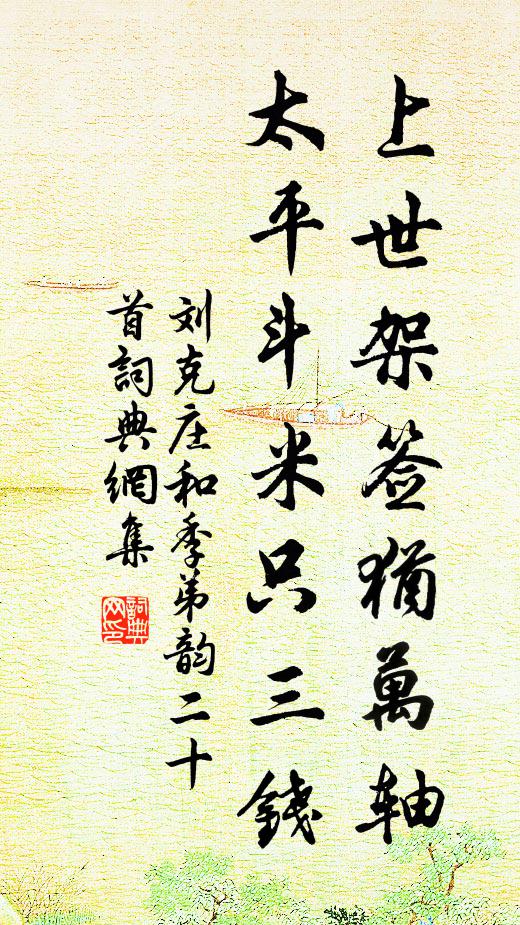 上世架签猶萬軸
太平斗米只三錢
刘克庄和季弟韵二十
首詞典網集
詞典
网印